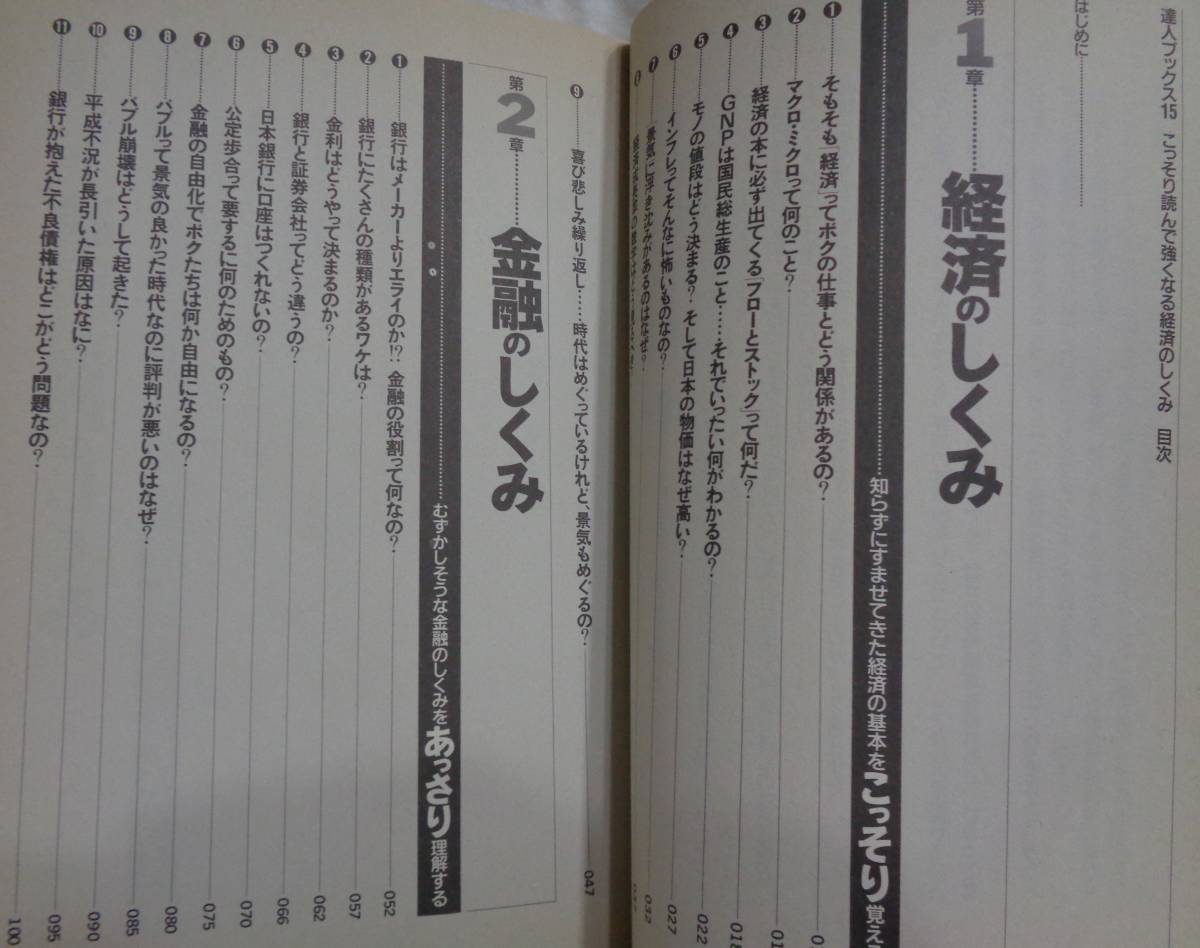 達人ブックス15 こっそり読んで強くなる経済のしくみ 目次
はじめに
第1章 経済のしくみ
知らずにすませてきた経済の基本をこっそり覚え
❶ そもそも「経済」ってボクの仕事とどう関係があるの?
❷ マクロ・ミクロって何のこと?
❸ 経済の本に必ず出てくる「フローとストック」って何だ? 01
❹ GNPは国民総生産のこと……それでいったい何がわかるの? 018
❺ モノの値段はどう決まる? そして日本の物価はなぜ高い? 022
❻ インフレってそんなに怖いものなの? 027
❼ 「景気に浮き沈みがあるのはなぜ? 032
❾ 喜び悲しみ繰り返し……時代はめぐっているけれど、景気もめぐるの? 047
第2章 金融のしくみ
むずかしそうな金融のしくみをあっさり理解する
❶ 銀行はメーカーよりエライのか!? 金融の役割って何なの? 052
❷ 銀行にたくさんの種類があるワケは? 057
❸ 金利はどうやって決まるのか? 062
❹ 銀行と証券会社ってどう違うの? 066
❺ 日本銀行に口座はつくれないの? 070
❻ 公定歩合って要するに何のためのもの? 075
❼ 金融の自由化でボクたちは何か自由になるの? 080
❽ バブルって景気の良かった時代なのに評判が悪いのはなぜ? 085
❾ バブル崩壊はどうして起きた? 090
❿ 平成不況が長引いた原因はなに? 095
⓫ 銀行が抱えた不良債権はどこがどう問題なの? 100